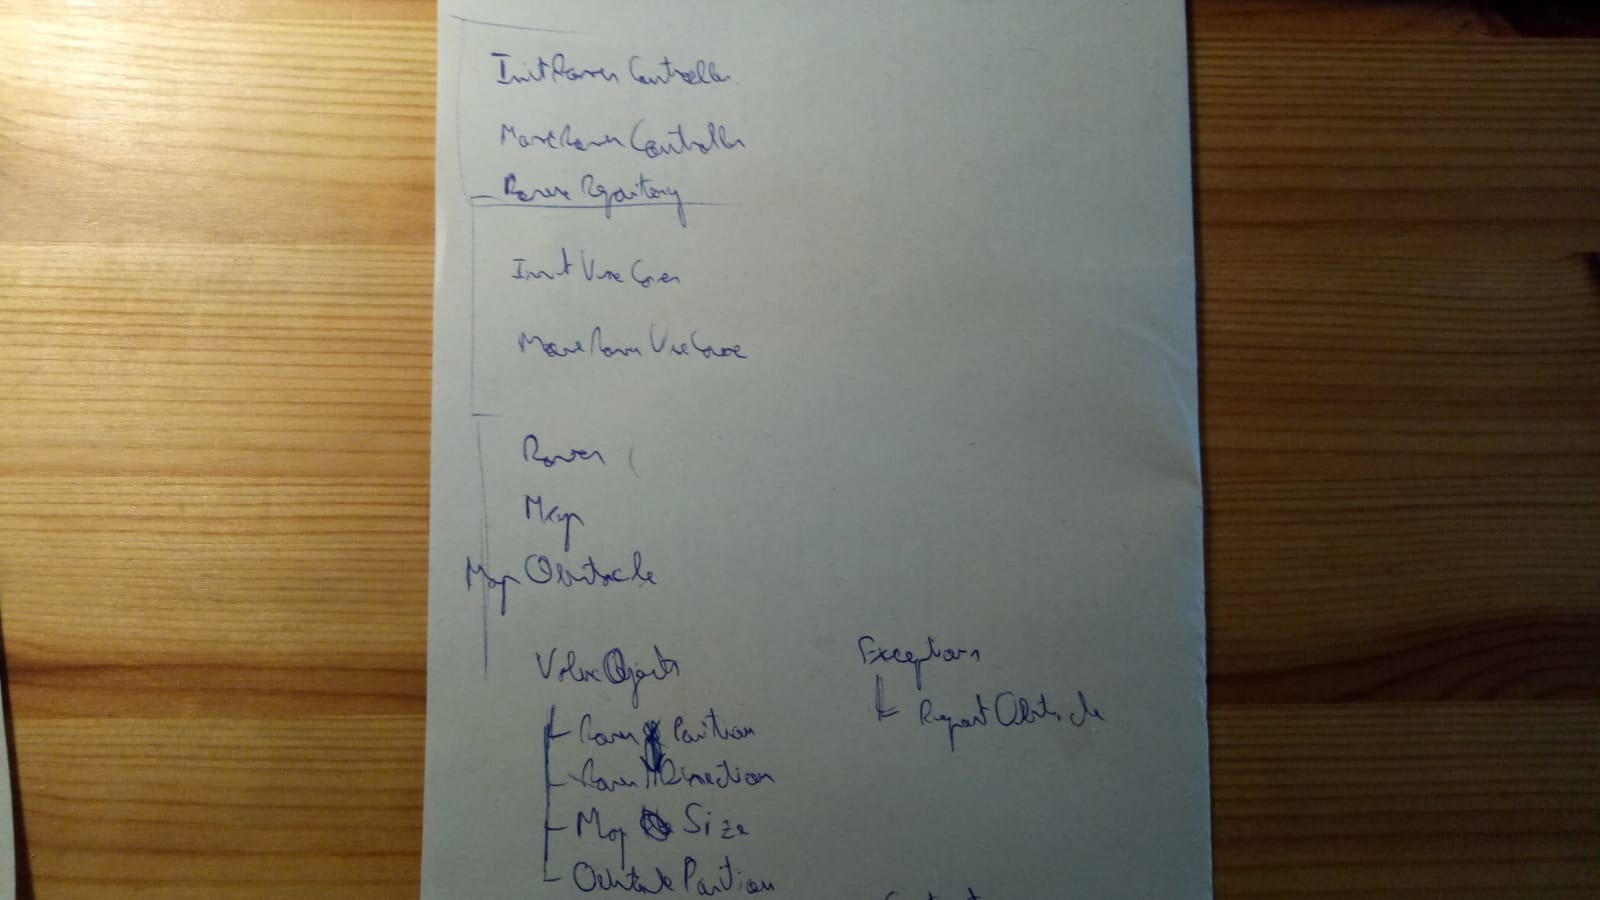 InitRoverController
MoveRoverController
RoverRepository
InitUseCase
MoveRoverUseCase
Rover
Map
MapObstacle
ValueObjects
RoverPosition
RoverDirection
MapSize
ObstaclePosition
Exceptions
ReportObstacle